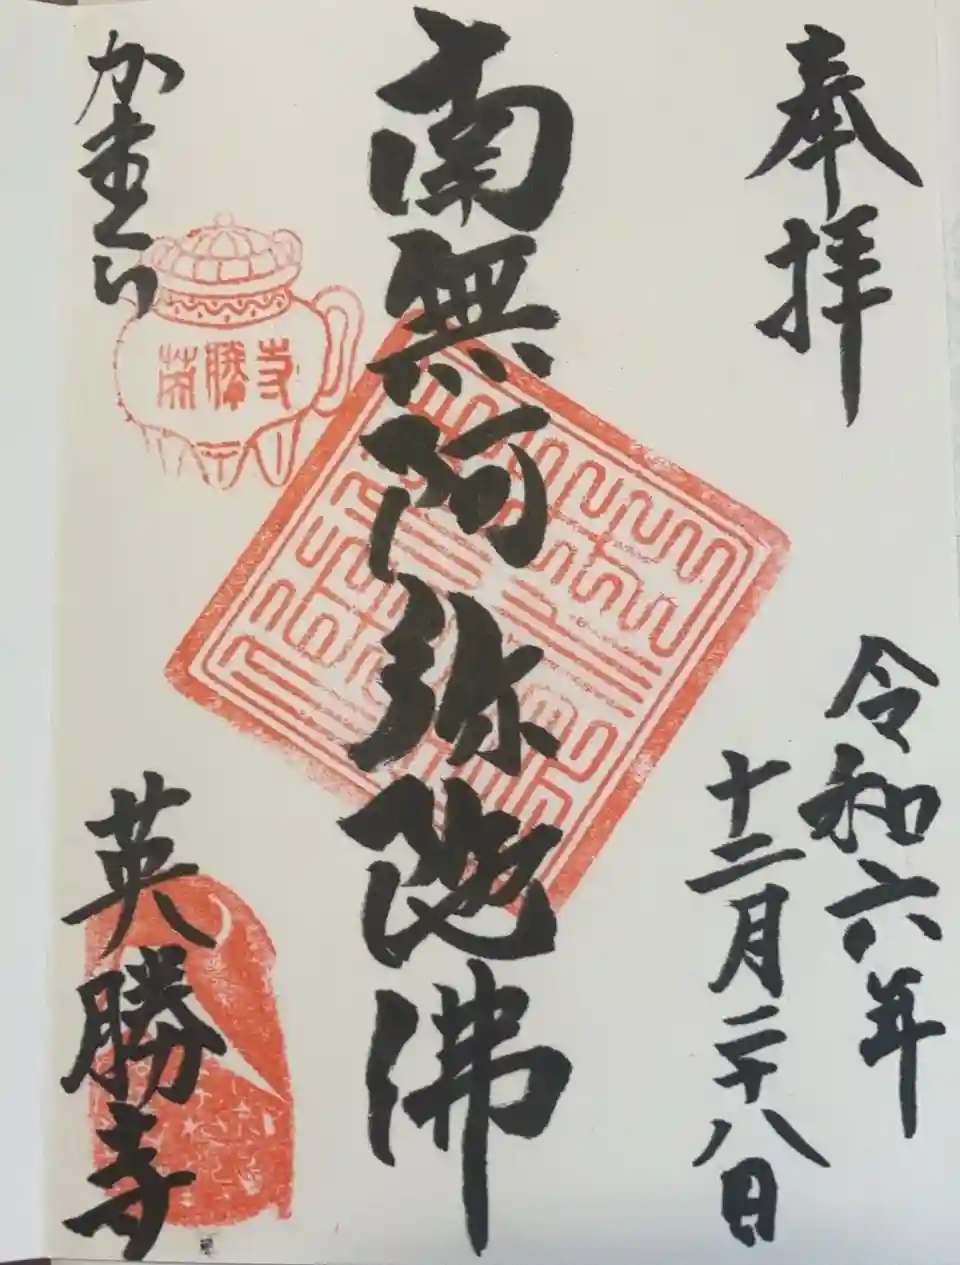 奉拝
令和六年
十二月二十八日
南無阿弥陀佛
英勝寺
英勝寺